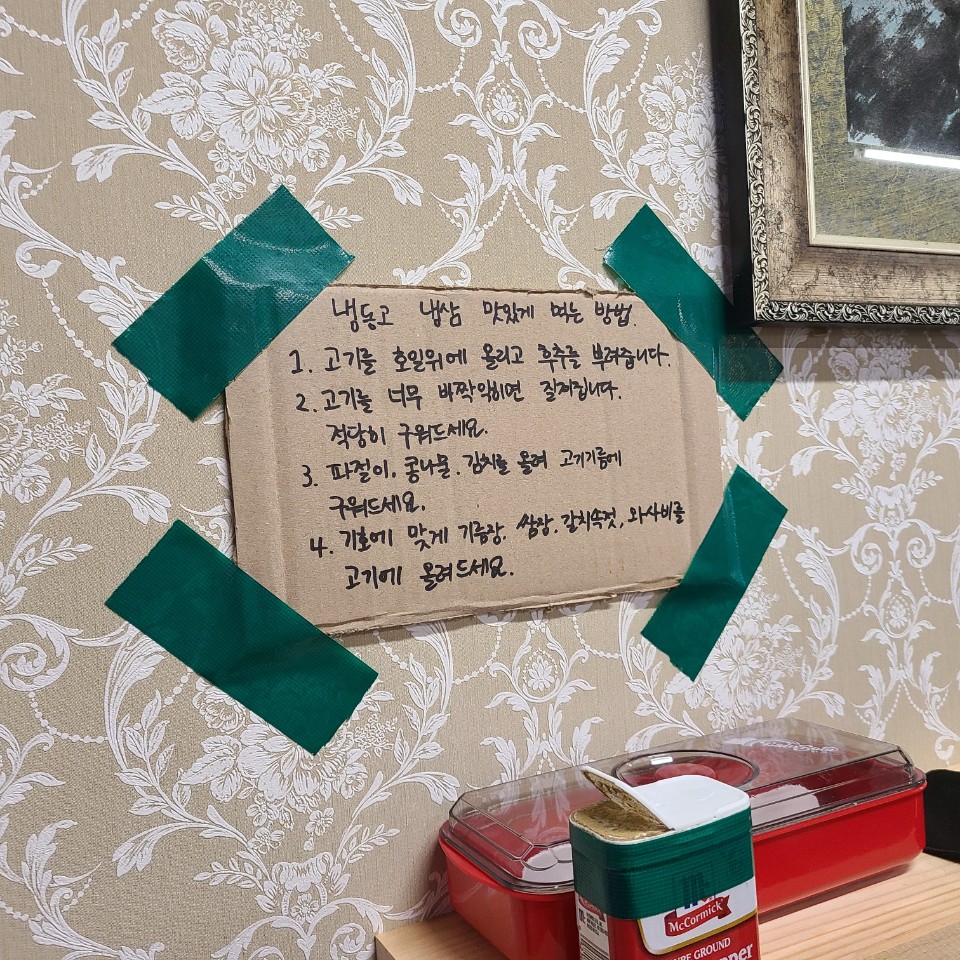 냉동고 냉삼 맛있게 먹는 방법.
1. 고기를 호일위에 올리고 후추를 뿌려줍니다.
2. 고기를 너무 바짝익히면 질겨집니다.
적당히 구워드세요.
3. 파절이, 콩나물, 김치를 올려 고기기름에
구워드세요.
4. 기호에 맞게 기름장, 쌈장, 갈치속젓, 와사비를
고기에 올려드세요.
McCormick
PURE GROUND